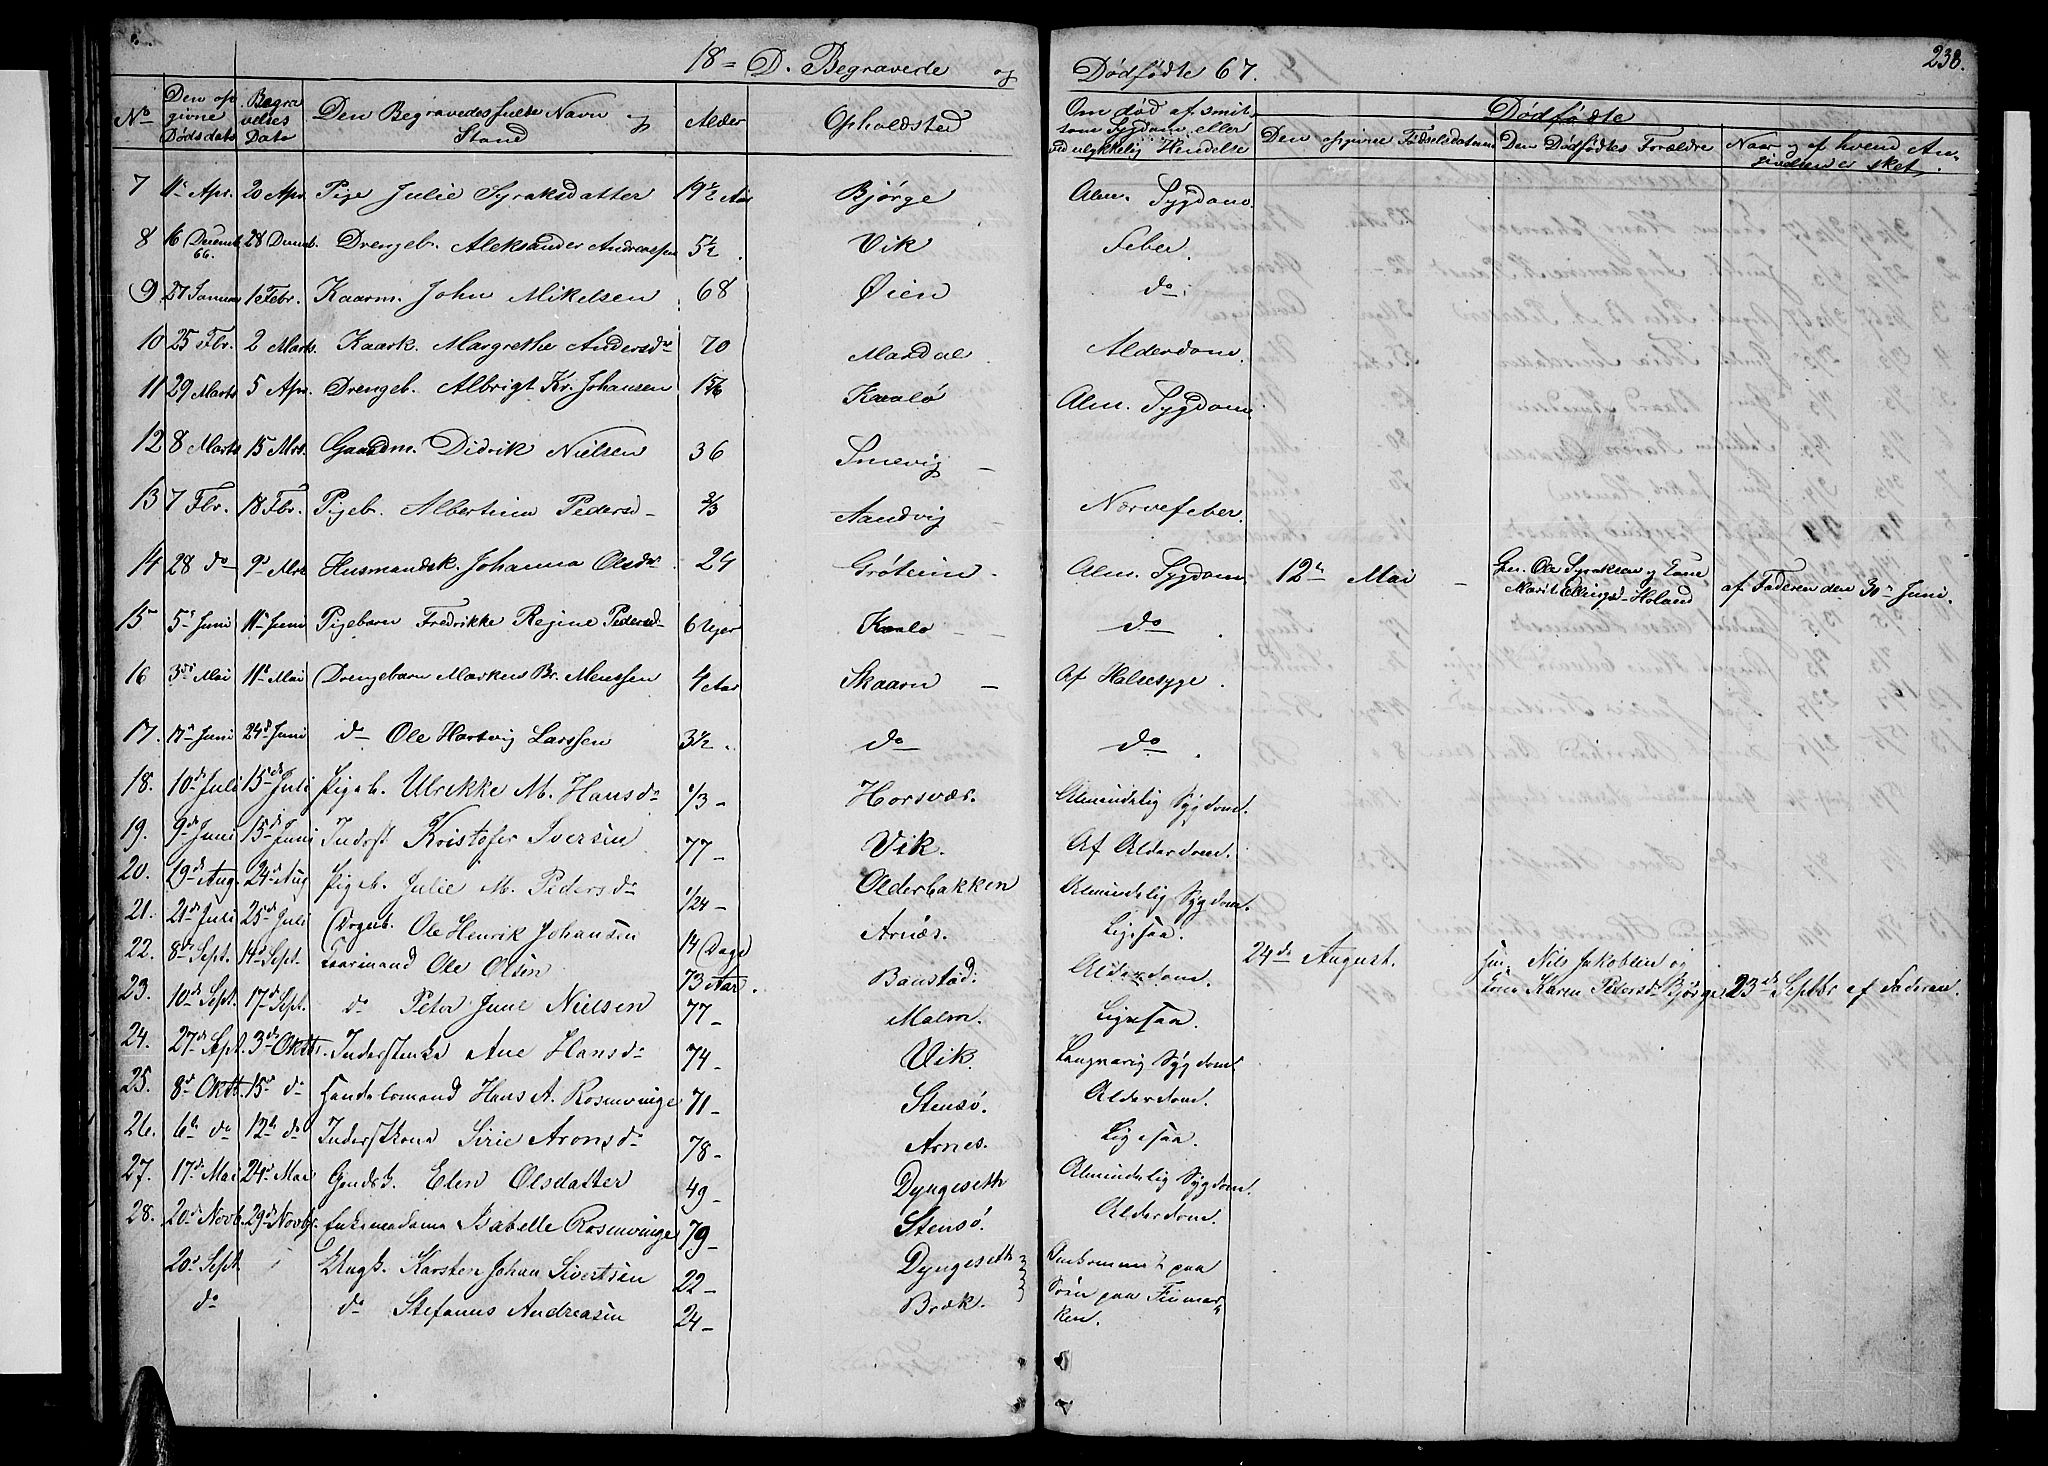 18 = D. Begravede og Dødfødte 67. 238.
No
Den op
givne
Dødsdato
Begra
velses
Dato
Den Begravedes fulde Navn og
Stand
Alder
Opholdsted
Om død af smit
som Sygdom eller
ved ulykkelig Hendelse
Dødfødte
Den opgivne Fødselsdatum
Den Dødfødtes Forældre
Naar og af hvem An
givelsen er sket
7 Apr. 20 Apr. Pige Julie Syraksdatter 19½ Aar Bjørge Alm. Sygdom.
8 16 Decemb. 66. 28 Decemb. Drengeb. Aleksander Andreassen 5½ Vik Feber.
9 27 Januar Febr. Kaarm. John Mikelsen 68 Øien do.
10 25 Fbr. 2 Marts. Kaark. Margrethe Andersdr 70 Mardal Alderdom.
11 29 Marts 5 Apr. Drengeb. Albrigt Kr. Johansen Kaalø Alm. Sygdom.
12 8 Marts 15 Mrs. Gaardm. Didrik Nielsen 36 Smevig —
13 7 Fbr. 18 Fbr. Pigeb. Albertina Pedersd 2/3 Sandvig — Nervefeber.
14 28 do 9de Mrs Husmandsk. Johanna Olsdr 24 Grøteim — Alm. Sygdom 12te Mai — Gm. Ole Syraksen og Kone
Marit Ellingsd. Holand af Faderen den 30te Juni.
15 5te Juni 11te Juni Pigebarn Fredrikke Regine Pedersd 6 Uger Kaalø — do
16 3de Mai 11te Mai Drengebarn Markus Br. Menssen 4 Aar Skaarn — Af Halsesyge.
17. 17de Juni 24de Juni do Ole Hartvig Larssen 3½ do do
18. 10de Juli 15de Juli Pigeb. Ulrikke M. Hansdr 1/3 — Horsvær. Almindelig Sygdom.
19. 9de Juni 15de Juni Inderst Kristofer Iversen 77 — Vik. Af Alderdom.
20. 19de Aug. 24de Aug Pigeb. Julie M. Pedersdr 1/24 — Olderbakken Almindelig Sygdom.
21. 21de Juli 25de Juli Drgeb. Ole Henrik Johansen 14 Dage Arnæs. Ligesaa.
22. 8de Sept. 14de Sept. Kaarmand Ole Olsen 73 Aar. Baustad. Alderdom. 24de August. Gm. Nils Jakobsen og
Kone Karen Pedersdr Bjørge 23de Septbr af Faderen.
23. 10de Sept. 17de Sept. do Peter June Nielsen 77 — Malm. Ligesaa.
24. 27de Sept. 3de Oktbr. Inderstenke Ane Hansdr 74 — Vik. Langvarig Sygdom.
25. 8de Oktb. 15de do Handelsmand Hans A. Rosenvinge 71 — Stensø. Alderdom.
26. 6te do 12te do Inderstkone Sirie Aronsdr 78 — Arnes. Ligesaa.
27. 17de Mai 24de Mai Gmdsk. Elen Olsdatter 49 — Dyngeseth Almindelig Sygdom.
28. 20de Novb. 29de Novbr. Enkemadame Isabelle Rosenvinge 79 — Stensø. Alderdom.
20de Sept Ungk. Karsten Johan Sivertsen 22 — Dyngeseth Omkommet paa
do do Stefanus Andreasen 24 — Bræk. Søen paa Finmar-
ken.